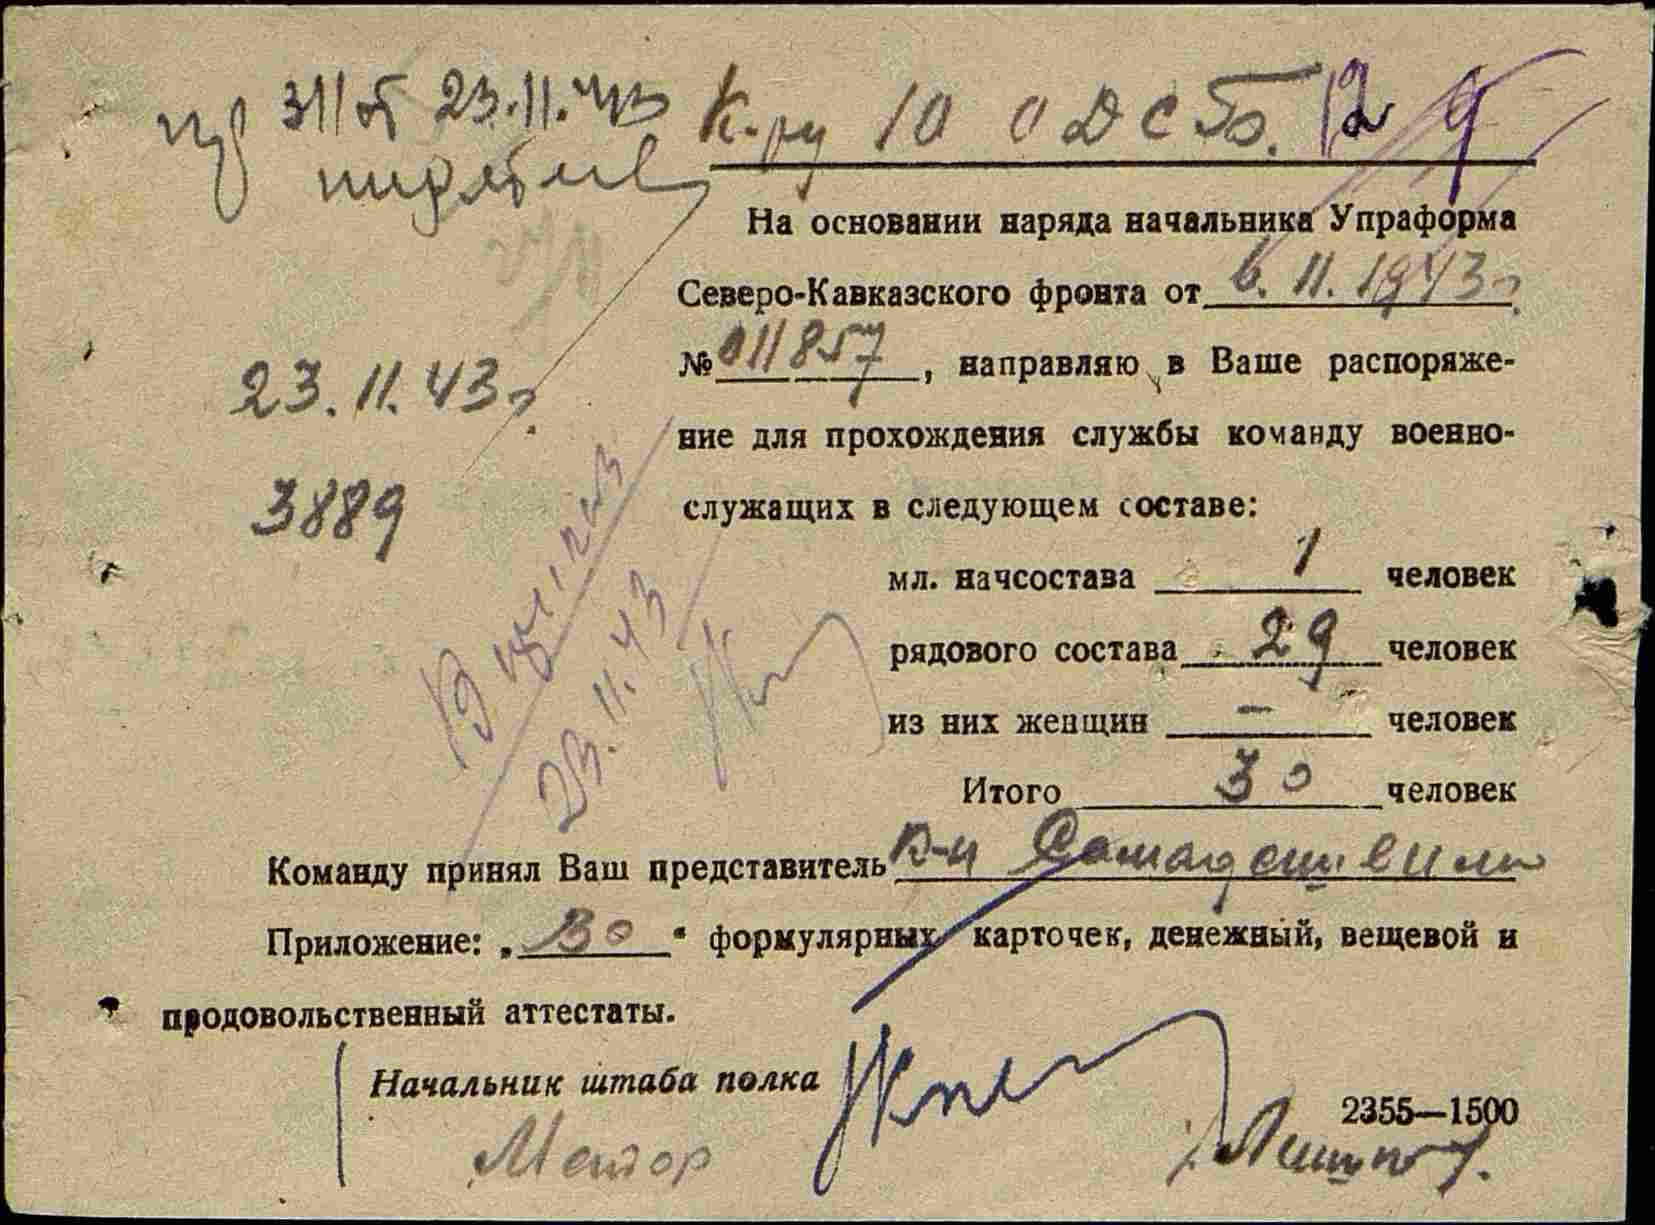 311 от 23.11.43
К-ру 10 О Д С Б.
На основании наряда начальника Упраформа
Северо-Кавказского фронта от 6.11.1943г
№ 011857, направляю в Ваше распоряже-
23.11.43г.
ние для прохождения службы команду военно-
3889
служащих в следующем составе:
мл. начсостава 1 человек
рядового состава 29 человек
из них женщин — человек
23.11.43
Итого 30 человек
Команду принял Ваш представитель
Приложение: „30“ формулярных карточек, денежный, вещевой и
продовольственный аттестаты.
Начальник штаба полка
2355—1500
Майор